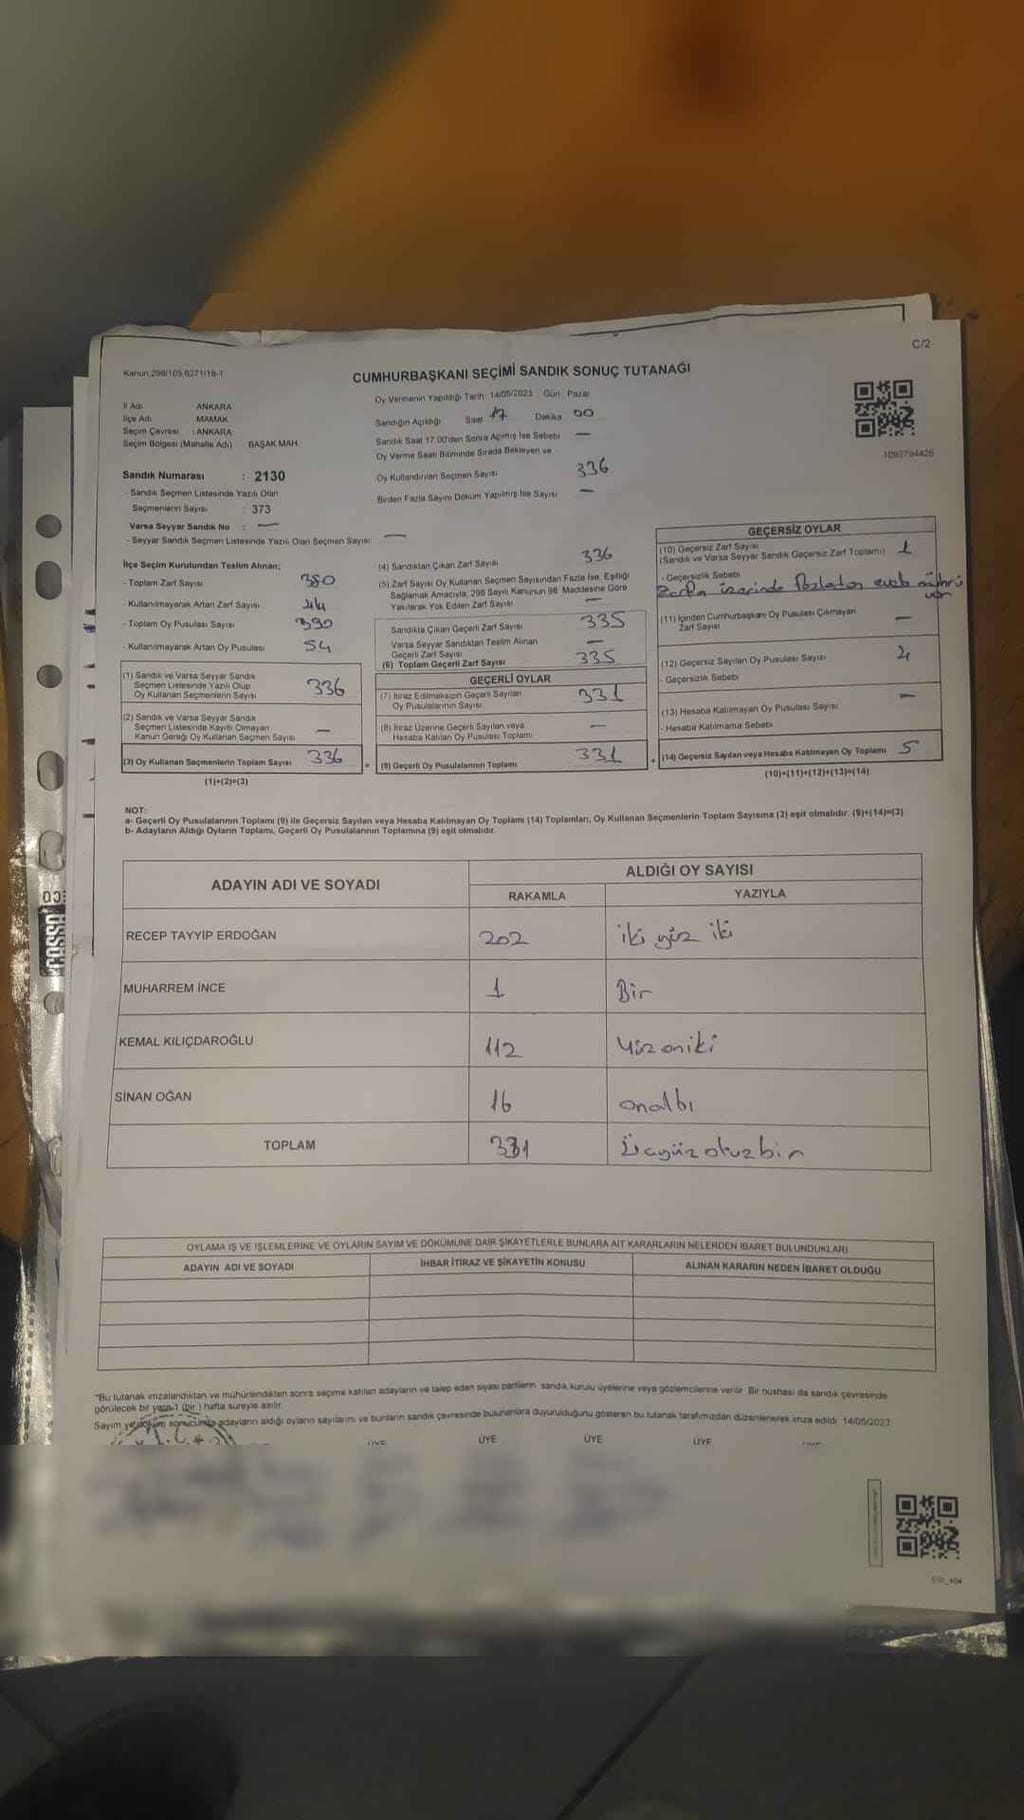 C/2
Kanun,298/105,6271/18-1
CUMHURBAŞKANI SEÇİMİ SANDIK SONUÇ TUTANAĞI
İl Adı ANKARA
İlçe Adı MAMAK
Seçim Çevresi : ANKARA
Seçim Bölgesi (Mahalle Adı) BAŞAK MAH.
Sandık Numarası : 2130
- Sandık Seçmen Listesinde Yazılı Olan
Seçmenlerin Sayısı : 373
Varsa Seyyar Sandık No : —
- Seyyar Sandık Seçmen Listesinde Yazılı Olan Seçmen Sayısı —
Oy Vermenin Yapıldığı Tarih 14/05/2023 Gün Pazar
Sandığın Açıldığı Saat 17 Dakika 00
Sandık Saat 17.00'den Sonra Açılmış İse Sebebi —
Oy Verme Saati Bitiminde Sırada Bekleyen ve
Oy Kullandırılan Seçmen Sayısı 336
Birden Fazla Sayım Döküm Yapılmış İse Sayısı —
1093794426
İlçe Seçim Kurulundan Teslim Alınan;
- Toplam Zarf Sayısı 380
- Kullanılmayarak Artan Zarf Sayısı 44
- Toplam Oy Pusulası Sayısı 390
- Kullanılmayarak Artan Oy Pusulası 54
(1) Sandık ve Varsa Seyyar Sandık
Seçmen Listesinde Yazılı Olup
Oy Kullanan Seçmenlerin Sayısı 336
(2) Sandık ve Varsa Seyyar Sandık
Seçmen Listesinde Kayıtlı Olmayan
Kanun Gereği Oy Kullanan Seçmen Sayısı —
(3) Oy Kullanan Seçmenlerin Toplam Sayısı 336
(1)+(2)=(3)
(4) Sandıktan Çıkan Zarf Sayısı 336
(5) Zarf Sayısı Oy Kullanan Seçmen Sayısından Fazla İse, Eşitliği
Sağlamak Amacıyla, 298 Sayılı Kanunun 98. Maddesine Göre
Yakılarak Yok Edilen Zarf Sayısı —
Sandıkta Çıkan Geçerli Zarf Sayısı 335
Varsa Seyyar Sandıktan Teslim Alınan
Geçerli Zarf Sayısı —
(6) Toplam Geçerli Zarf Sayısı 335
GEÇERLİ OYLAR
(7) İtiraz Edilmeksizin Geçerli Sayılan
Oy Pusulalarının Sayısı 331
(8) İtiraz Üzerine Geçerli Sayılan veya
Hesaba Katılan Oy Pusulası Toplamı —
= (9) Geçerli Oy Pusulalarının Toplamı 331
GEÇERSİZ OYLAR
(10) Geçersiz Zarf Sayısı
(Sandık ve Varsa Seyyar Sandık Geçersiz Zarf Toplamı) 1
- Geçersizlik Sebebi
Zarfın üzerinde fazladan evet mührü
var
(11) İçinden Cumhurbaşkanı Oy Pusulası Çıkmayan
Zarf Sayısı —
(12) Geçersiz Sayılan Oy Pusulası Sayısı 4
- Geçersizlik Sebebi
(13) Hesaba Katılmayan Oy Pusulası Sayısı —
- Hesaba Katılmama Sebebi
+ (14) Geçersiz Sayılan veya Hesaba Katılmayan Oy Toplamı 5
(10)+(11)+(12)+(13)=(14)
NOT:
a- Geçerli Oy Pusulalarının Toplamı (9) ile Geçersiz Sayılan veya Hesaba Katılmayan Oy Toplamı (14) Toplamları, Oy Kullanan Seçmenlerin Toplam Sayısına (3) eşit olmalıdır. (9)+(14)=(3)
b- Adayların Aldığı Oyların Toplamı, Geçerli Oy Pusulalarının Toplamına (9) eşit olmalıdır.
ADAYIN ADI VE SOYADI ALDIĞI OY SAYISI
RAKAMLA YAZIYLA
RECEP TAYYİP ERDOĞAN 202 iki yüz iki
MUHARREM İNCE 1 Bir
KEMAL KILIÇDAROĞLU 112 Yüz oniki
SİNAN OĞAN 16 onaltı
TOPLAM 331 Üçyüz otuzbir
OYLAMA İŞ VE İŞLEMLERİNE VE OYLARIN SAYIM VE DÖKÜMÜNE DAİR ŞİKAYETLERLE BUNLARA AİT KARARLARIN NELERDEN İBARET BULUNDUKLARI
ADAYIN ADI VE SOYADI İHBAR İTİRAZ VE ŞİKAYETİN KONUSU ALINAN KARARIN NEDEN İBARET OLDUĞU
"Bu tutanak imzalandıktan ve mühürlendikten sonra seçime katılan adayların ve talep eden siyasi partilerin sandık kurulu üyelerine veya gözlemcilerine verilir. Bir nüshası da sandık çevresinde
görülecek bir yere 1 (bir ) hafta süreyle asılır.
Sayım ve döküm sonucunda adayların aldığı oyların sayılarını ve bunların sandık çevresinde bulunanlara duyurulduğunu gösteren bu tutanak tarafımızdan düzenlenerek imza edildi. 14/05/2023
ÜYE ÜYE ÜYE ÜYE